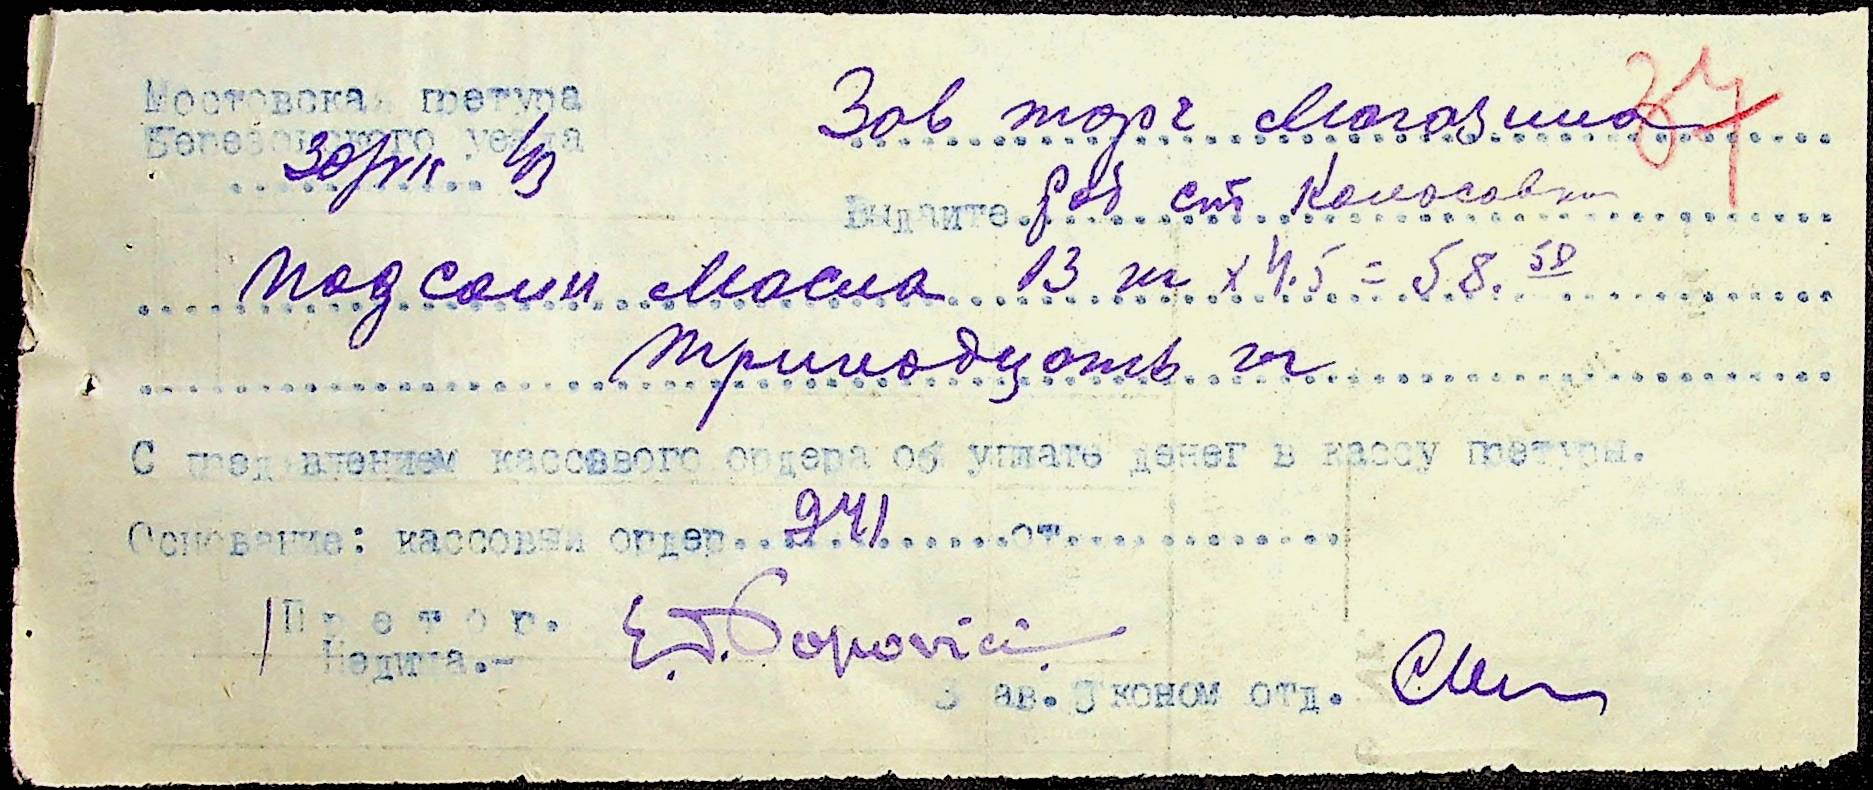 Мостовская претура
Березовского уезда
37
Зав торг Магазина
Выдайте раб ст Колосовки
Подсолн Масла 13 кг х 4.5 = 58.50
тринадцать кг
С пред влением кассового ордера об уплате денег в кассу претуры.
Основание: кассовый ордер 241 от
Претор.
Недица.-
E. D. Popovici.
Зав. Эконом отд.